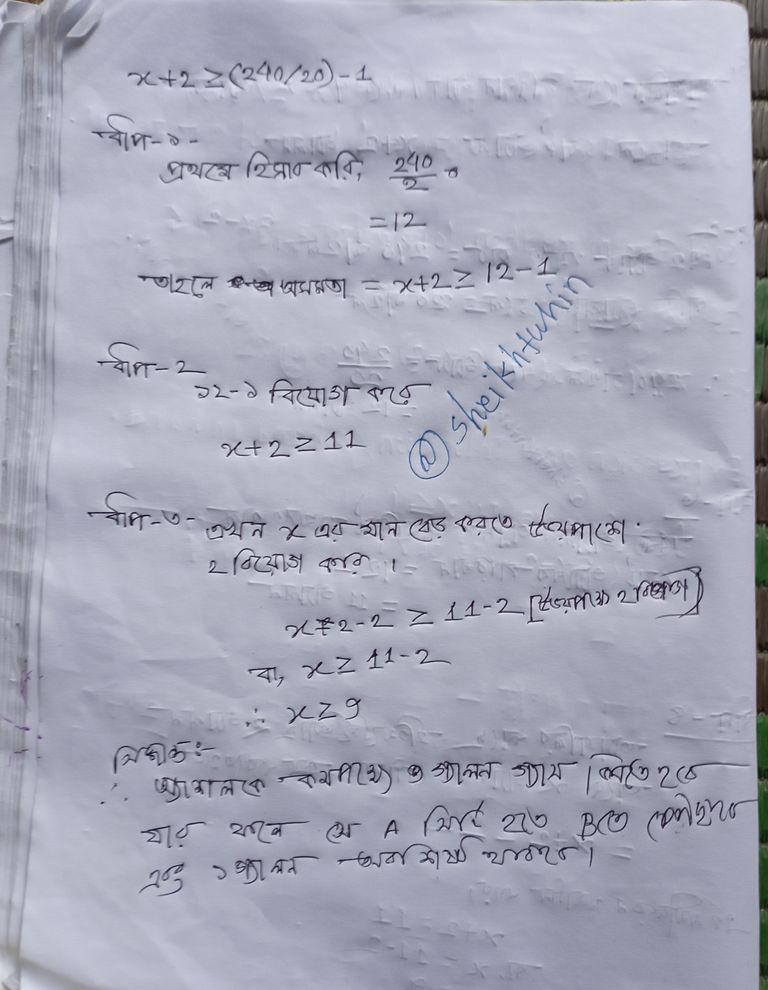 x+2 ≥ (240/20) - 1
ধাপ-১-
প্রথমে হিসাব করি, 240/2
= 12
তাহলে অসমতা = x+2 ≥ 12-1
ধাপ-2
১২-১ বিয়োগ করে
x+2 ≥ 11
@sheikhtuhin
ধাপ-৩- এখন x এর মান বের করতে উভয়পাশে
2 বিয়োগ করি।
x+2-2 ≥ 11-2 [উভয়পাশে 2 বিয়োগ]
বা, x ≥ 11-2
∴ x ≥ 9
সিদ্ধান্ত:-
∴ কমপক্ষে ৯ গ্যালন গ্যাস কিনতে হবে
যার ফলে সে A সিটি হতে B তে পৌঁছাবে
এবং ১ গ্যালন অবশিষ্ট থাকবে।